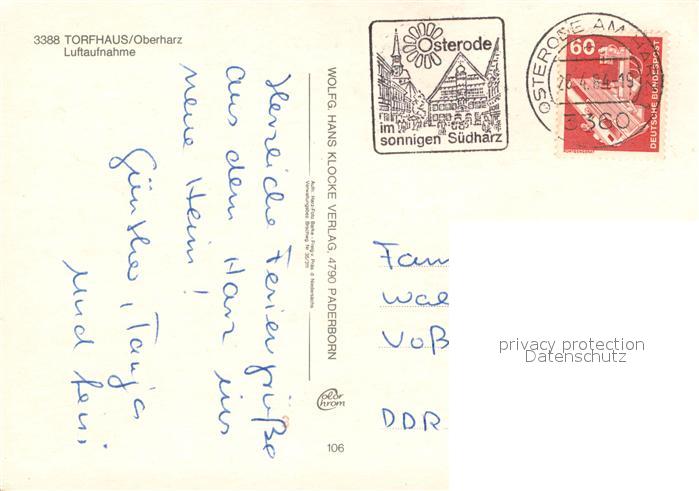 3388 TORFHAUS/Oberharz
Luftaufnahme
Herzliche Feriengrüße
aus dem Harz ins
neue Heim!
Günther, Tanja
und
WOLFG. HANS KLOCKE VERLAG, 4790 PADERBORN
Color
chrom
106
Osterode
im
sonnigen Südharz
OSTERODE AM HARZ
84-19
3360
60
DEUTSCHE BUNDESPOST
Fam
Wal
Voß
DDR
privacy protection
Datenschutz